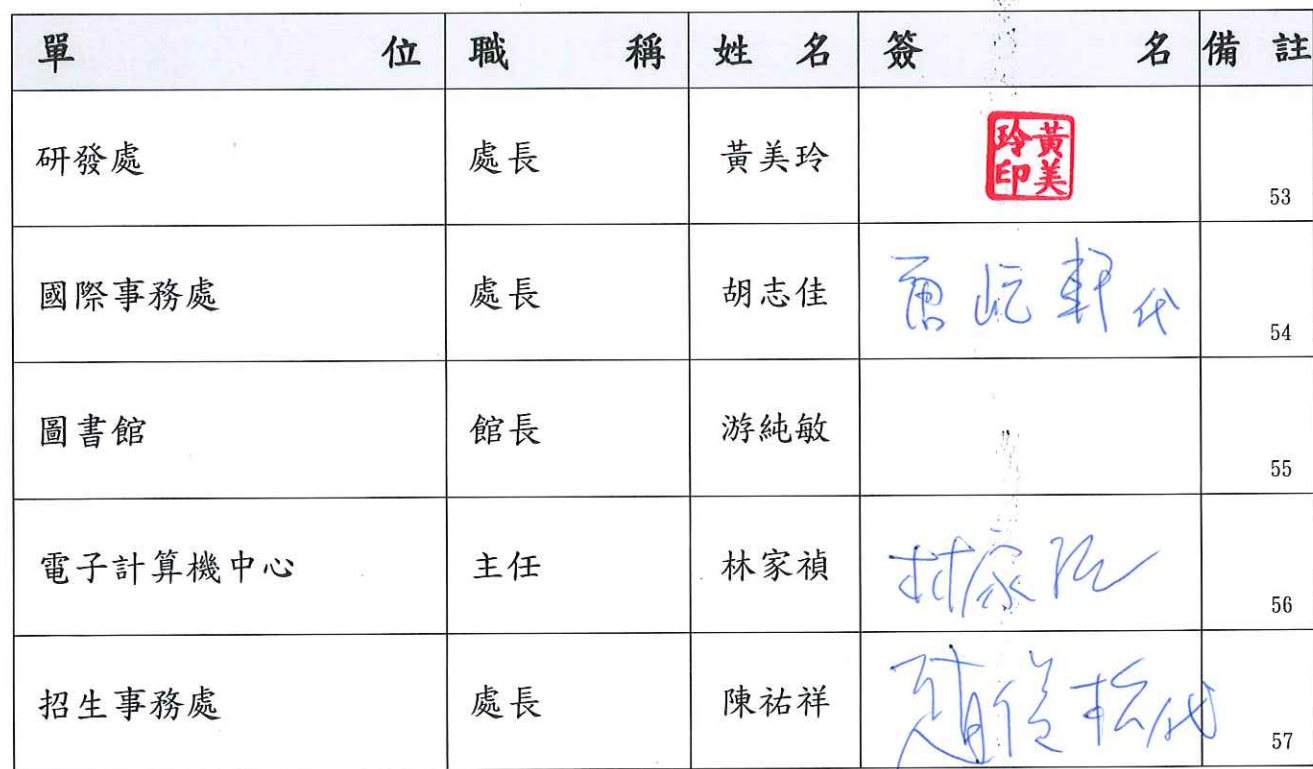 單位 職稱 姓名 簽名 備註
研發處 處長 黃美玲 黃美玲印 53
國際事務處 處長 胡志佳 軒代 54
圖書館 館長 游純敏 55
電子計算機中心 主任 林家禎 林家禎 56
招生事務處 處長 陳祐祥 趙 松代 57